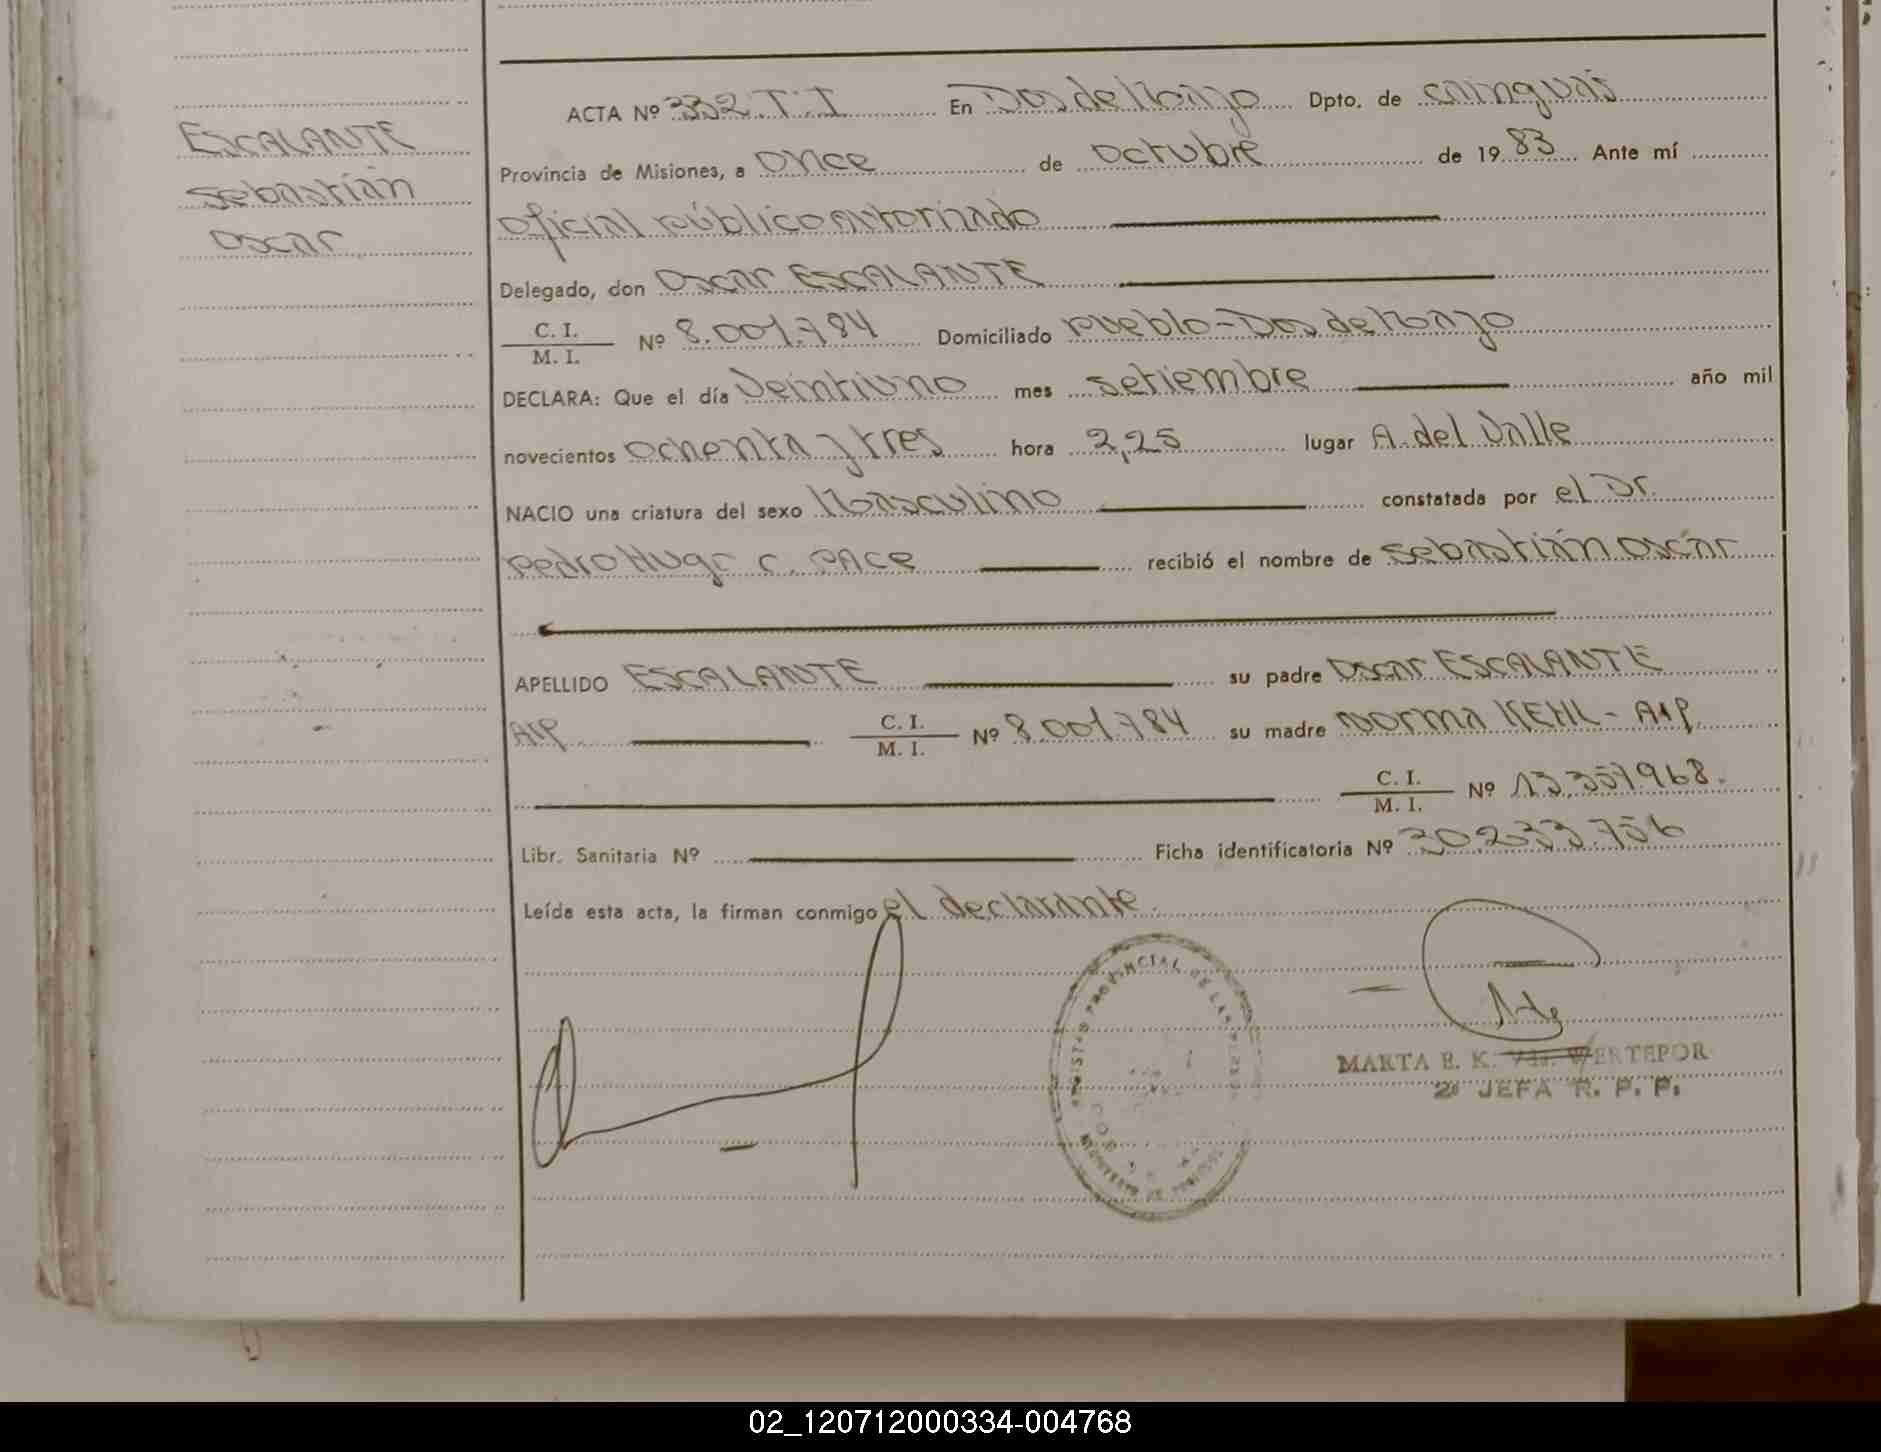 ESCALANTE
Sebastián
Oscar
ACTA Nº 332.T.I En Dos de Mayo Dpto. de Cainguás
Provincia de Misiones, a once de octubre de 1983 Ante mí
Oficial público autorizado
Delegado, don Oscar ESCALANTE
C. I.
M. I. Nº 8.001.784 Domiciliado Pueblo-Dos de Mayo
DECLARA: Que el día Veintiuno mes setiembre año mil
novecientos ochenta y tres hora 2,25 lugar A. del Valle
NACIO una criatura del sexo Masculino constatada por el Dr.
Pedro Hugo C. Pace recibió el nombre de Sebastián Oscár
APELLIDO ESCALANTE su padre Oscar ESCALANTE
Arg C. I.
M. I. Nº 8.001.784 su madre Norma KEHL - Arg.
C. I.
M. I. Nº 13.357.968.
Libr. Sanitaria Nº Ficha identificatoria Nº 30.233.756
Leída esta acta, la firman conmigo el declarante.
PROVINCIAL DE LAS
MARTA E. K. WERTEPOR
2ª JEFA R. P. P.
02_120712000334-004768